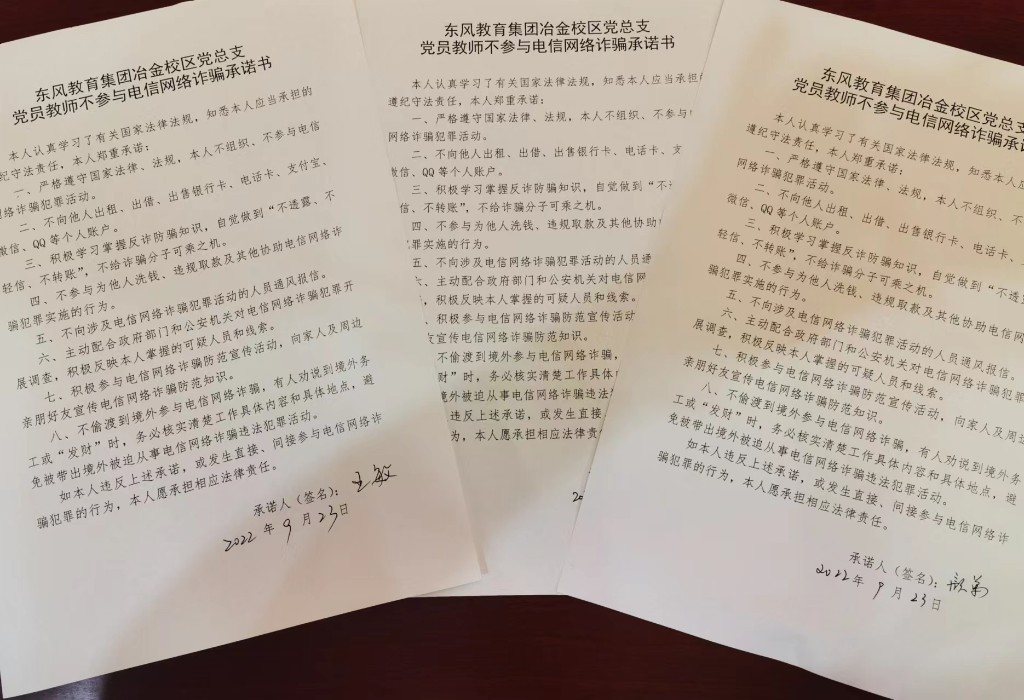 东风教育集团冶金校区党总支
党员教师不参与电信网络诈骗承诺书
本人认真学习了有关国家法律法规，知悉本人应当承担的
纪守法责任，本人郑重承诺：
一、严格遵守国家法律、法规，本人不组织、不参与电信
网络诈骗犯罪活动。
二、不向他人出租、出借、出售银行卡、电话卡、支付宝、
微信、QQ等个人账户。
三、积极学习掌握反诈防骗知识，自觉做到“不透露、不
轻信、不转账”，不给诈骗分子可乘之机。
四、不参与为他人洗钱、违规取款及其他协助电信网络诈
骗犯罪实施的行为。
五、不向涉及电信网络诈骗犯罪活动的人员通风报信。
六、主动配合政府部门和公安机关对电信网络诈骗犯罪开
展调查，积极反映本人掌握的可疑人员和线索。
七、积极参与电信网络诈骗防范宣传活动，向家人及周边
亲朋好友宣传电信网络诈骗防范知识。
八、不偷渡到境外参与电信网络诈骗，有人劝说到境外务
工或“发财”时，务必核实清楚工作具体内容和具体地点，避
免被带出境外被迫从事电信网络诈骗违法犯罪活动。
如本人违反上述承诺，或发生直接、间接参与电信网络诈
骗犯罪的行为，本人愿承担相应法律责任。
承诺人（签名）：王敏
2022年9月23日
东风教育集团冶金校区党总支
党员教师不参与电信网络诈骗承诺书
本人认真学习了有关国家法律法规，知悉本人应当承担
遵纪守法责任，本人郑重承诺：
一、严格遵守国家法律、法规，本人不组织、不参与
网络诈骗犯罪活动。
二、不向他人出租、出借、出售银行卡、电话卡、支
微信、QQ等个人账户。
三、积极学习掌握反诈防骗知识，自觉做到“不
信、不转账”，不给诈骗分子可乘之机。
四、不参与为他人洗钱、违规取款及其他协助
犯罪实施的行为。
五、不向涉及电信网络诈骗犯罪活动的人员通
、主动配合政府部门和公安机关对电信网
，积极反映本人掌握的可疑人员和线索。
、积极参与电信网络诈骗防范宣传活动
友宣传电信网络诈骗防范知识。
不偷渡到境外参与电信网络诈骗，
财”时，务必核实清楚工作具体
境外被迫从事电信网络诈骗违法
违反上述承诺，或发生直接、
为，本人愿承担相应法律责
20
东风教育集团冶金校区党总支
党员教师不参与电信网络诈骗承诺
本人认真学习了有关国家法律法规，知悉本人应
遵纪守法责任，本人郑重承诺：
一、严格遵守国家法律、法规，本人不组织、不
网络诈骗犯罪活动。
二、不向他人出租、出借、出售银行卡、电话卡、
微信、QQ等个人账户。
三、积极学习掌握反诈防骗知识，自觉做到“不透
轻信、不转账”，不给诈骗分子可乘之机。
四、不参与为他人洗钱、违规取款及其他协助电信网
骗犯罪实施的行为。
五、不向涉及电信网络诈骗犯罪活动的人员通风报信。
六、主动配合政府部门和公安机关对电信网络诈骗犯
展调查，积极反映本人掌握的可疑人员和线索。
七、积极参与电信网络诈骗防范宣传活动，向家人及周
亲朋好友宣传电信网络诈骗防范知识。
八、不偷渡到境外参与电信网络诈骗，有人劝说到境外务
工或“发财”时，务必核实清楚工作具体内容和具体地点，避
免被带出境外被迫从事电信网络诈骗违法犯罪活动。
如本人违反上述承诺，或发生直接、间接参与电信网络诈
骗犯罪的行为，本人愿承担相应法律责任。
承诺人（签名）：
2022年9月23日